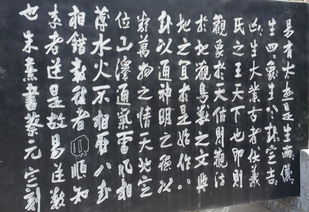 易有太極是生兩儀
生四象生八卦定吉
凶生大業古者伏羲
氏之王天下也仰則
觀象於天俯則觀法
於地觀鳥獸之文與
地之宜於是始作八
卦以通神明之德以
類萬物之情天地定
位山澤通氣雷風相
薄水火不相射八卦
相錯數往者順知
來者逆是故易逆數
也朱熹書蔡元定刻